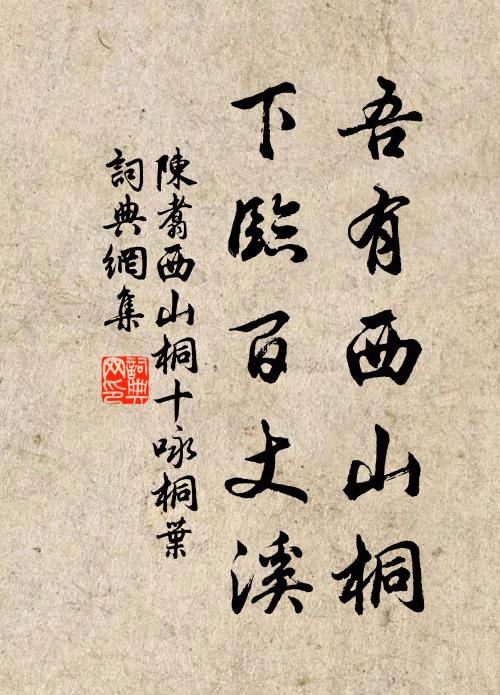 吾有西山桐
下臨百丈溪
陳翥西山桐十咏桐葉
詞典網集
詞典
网印